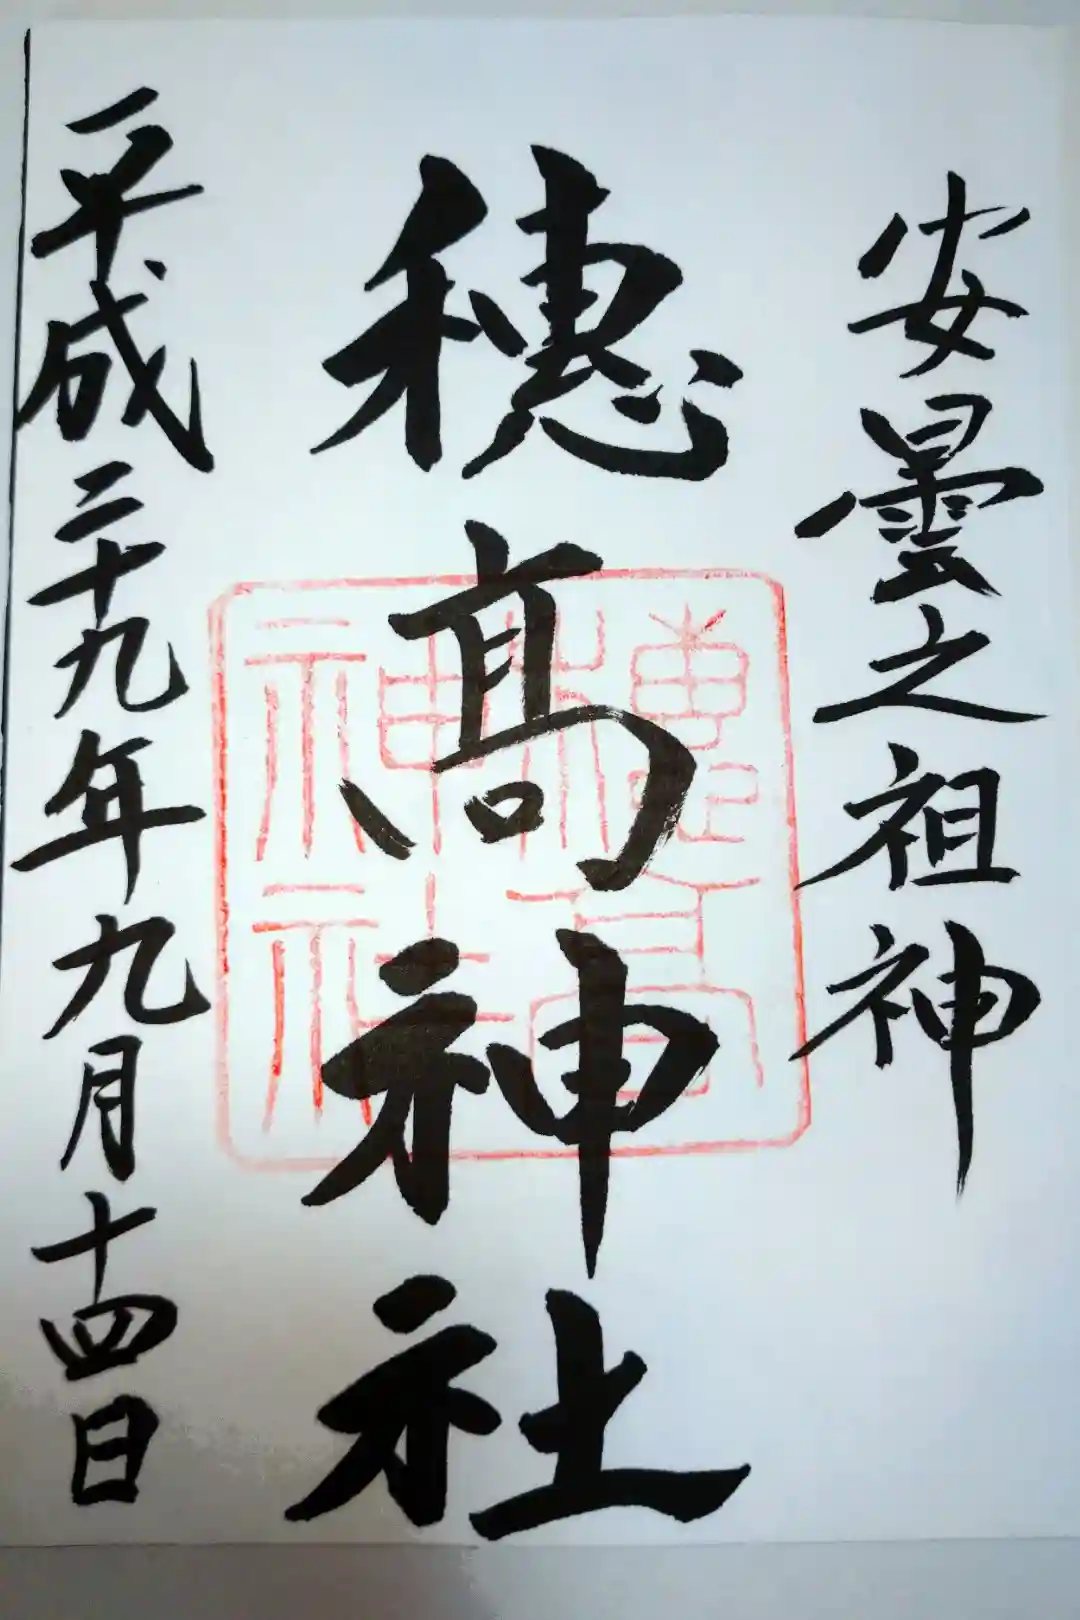 安曇之祖神
穂髙神社
穂高神社
平成二十九年九月十四日